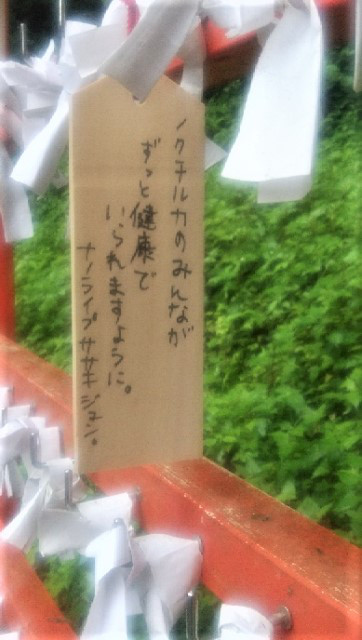 ノクチルカのみんなが
ずっと健康で
いられますように。
ナノライプ ササキジュン。